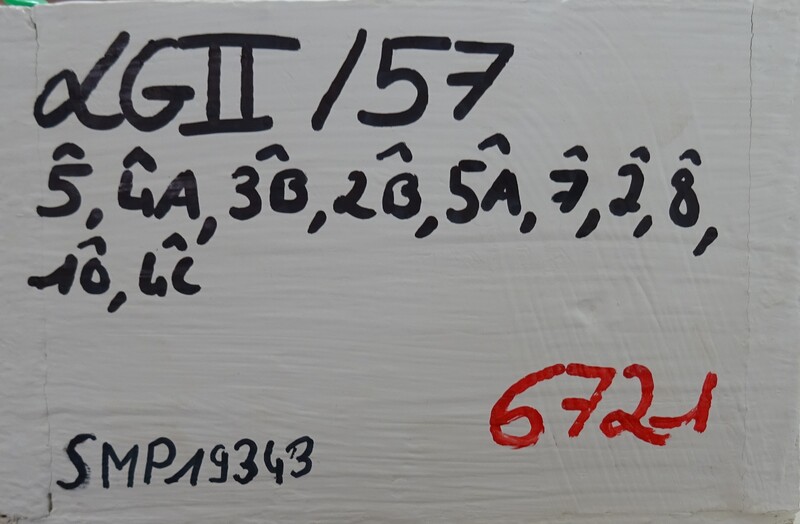 αGII/57
5̂, 4̂A, 3B̂, 2B̂, 5Â, 7̂, 2̂, 8̂,
10̂, 4Ĉ
6721
SMP19343